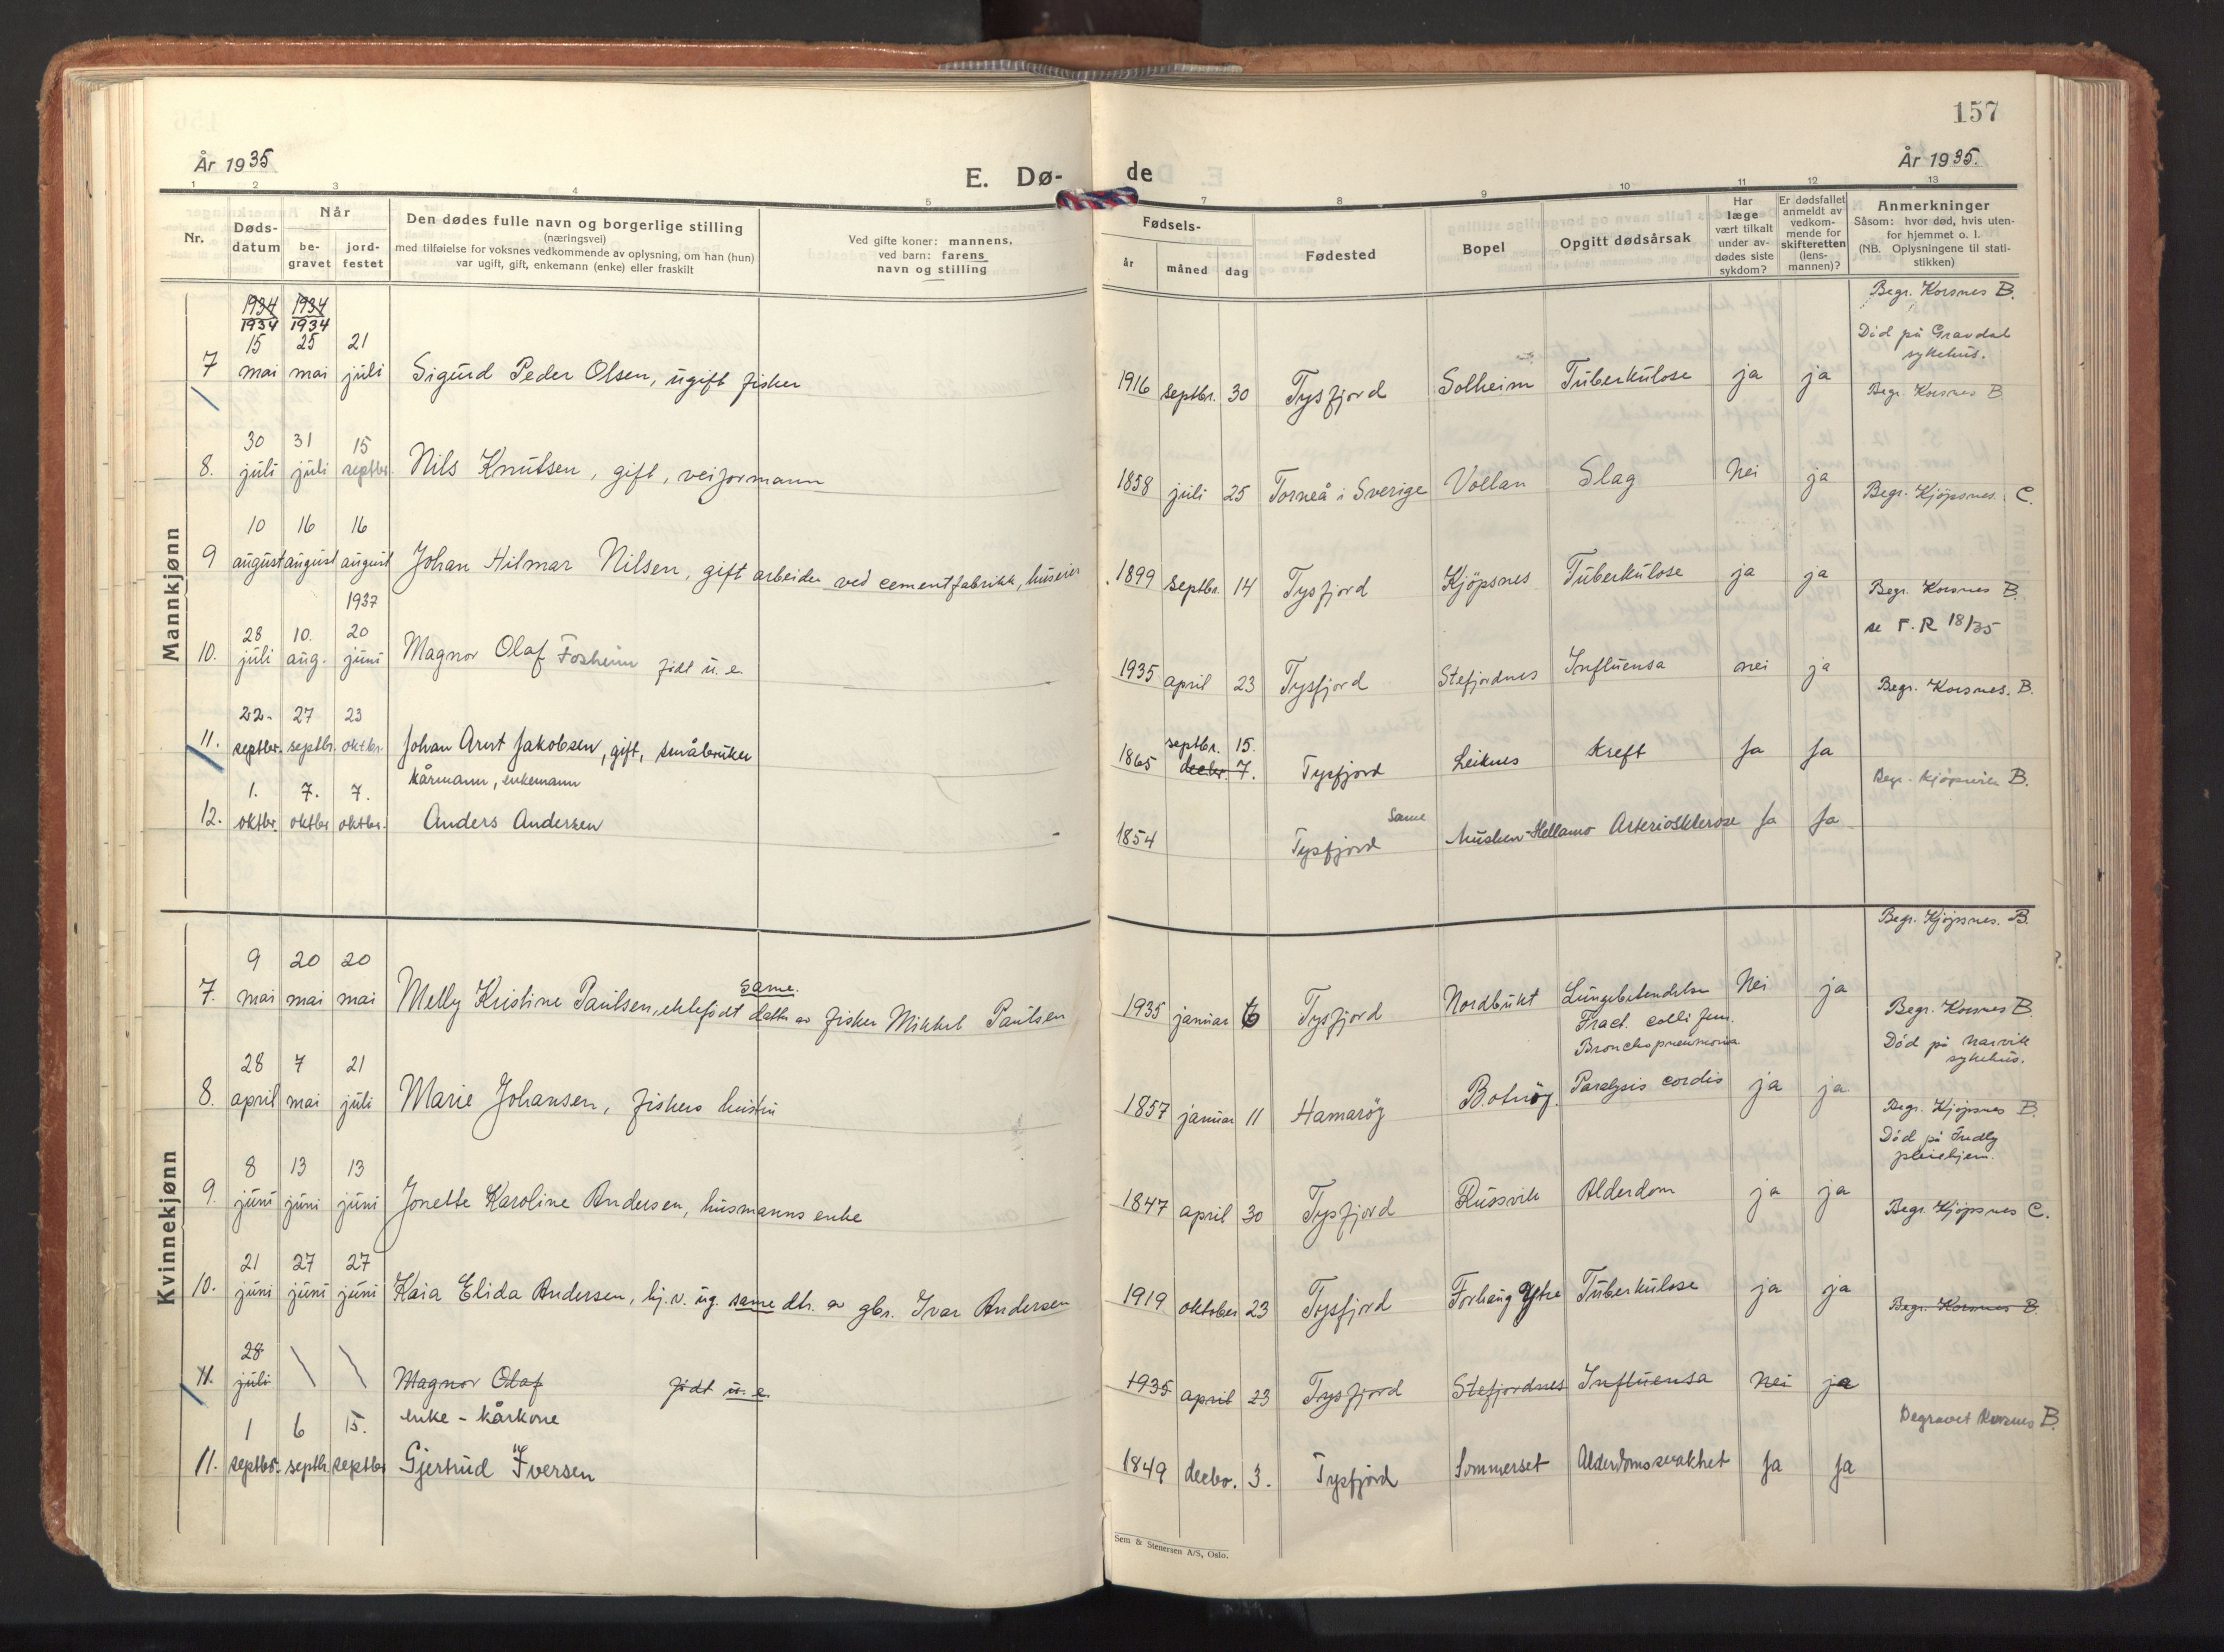 157
År 1935
År 1935.
E. Dø-
de
1 2 3 4 5 7 8 9 10 11 12 13
Nr.
Døds-
datum
Når
be-
gravet
jord-
festet
Den dødes fulle navn og borgerlige stilling
(næringsvei)
med tilføielse for voksnes vedkommende av oplysning, om han (hun)
var ugift, gift, enkemann (enke) eller fraskilt
Ved gifte koner: mannens,
ved barn: farens
navn og stilling
Fødsels-
år
måned
dag
Fødested
Bopel
Opgitt dødsårsak
Har
læge
vært tilkalt
under av-
dødes siste
sykdom?
Er dødsfallet
anmeldt av
vedkom-
mende for
skifteretten
(lens-
mannen)?
Anmerkninger
Såsom: hvor død, hvis uten-
for hjemmet o. l.
(NB. Oplysningene til stati-
stikken)
Mannkjønn
1934 1934
1934 1934
Begr. Korsnes B.
15 25 21
Død på Gravdal
sykehus.
7 mai mai juli Sigurd Peder Olsen, ugift fisker 1916 septbr. 30 Tysfjord Solheim Tuberkulose ja ja
Begr. Korsnes B
30 31 15
8. juli juli septbr. Nils Knutsen, gift, veiformann 1858 juli 25 Torneå i Sverige Vollan Slag Nei ja
Begr. Kjöpsnes. C.
10 16 16
9 august august august Johan Hilmar Nilsen, gift arbeider ved cementfabrikk, huseier 1899 septbr. 14 Tysfjord Kjöpsnes Tuberkulose ja ja
1937
Begr. Korsnes B.
28 10. 20
se F.R 18/35
10. juli aug. juni Magnor Olaf Fosheim født u. e. 1935 april 23 Tysfjord Stefjordnes Influensa nei ja
Begr. Korsnes. B.
22. 27 23
septbr. 15.
11. septbr. septbr. oktbr. Johan Arnt Jakobsen, gift, småbruker 1865 decbr. 7. Tysfjord Leiknes Kreft Ja Ja
kårmann, enkemann
Begr. Kjöpsvik B.
1. 7. 7.
Same
12. oktbr. oktbr oktbr. Anders Andersen 1854 Tysfjord Musken-Hellamo Arteriosklerose Ja Ja
Kvinnekjønn
Begr. Kjöpsnes. B.
9 20 20
same.
7. mai mai mai Melly Kristine Paulsen, ektefødt datter av fisker Mikkel Paulsen 1935 januar 6 Tysfjord Nordbukt Lungebetendelse Nei ja
Fract. colli fem.
Bronchopneumonia
Begr. Korsnes B.
Död på Narvik
sykehus.
28 7 21
8. april mai juli Marie Johansen, fiskers hustru 1857 januar 11 Hamaröy Botnöy. Paralysis cordis ja ja
Begr. Kjöpsnes B.
Död på Fredly
pleiehjem.
8 13 13
9. juni juni juni Jonette Karoline Andersen, husmanns enke 1847 april 30 Tysfjord Russvik Alderdom ja ja
Begr. Kjöpsnes C.
21 27 27
10. juni juni juni Kaia Elida Andersen, hj.v. ug. same dtr. av gbr. Ivar Andersen 1919 oktober 23 Tysfjord Forhaug Ytre Tuberkulose ja ja
Begr. Korsnes B.
28
11. juli Magnor Olaf født u. e. 1935 april 23 Tysfjord Stefjordnes Influensa Nei ja
enke - kårkone
Begravet Korsnes B
1 6 15.
11. septbr. septbr. septbr Gjertrud Iversen 1849 decbr. 3. Tysfjord Sommerset Alderdomssvakhet Ja Ja
Sem & Stenersen A/S, Oslo.